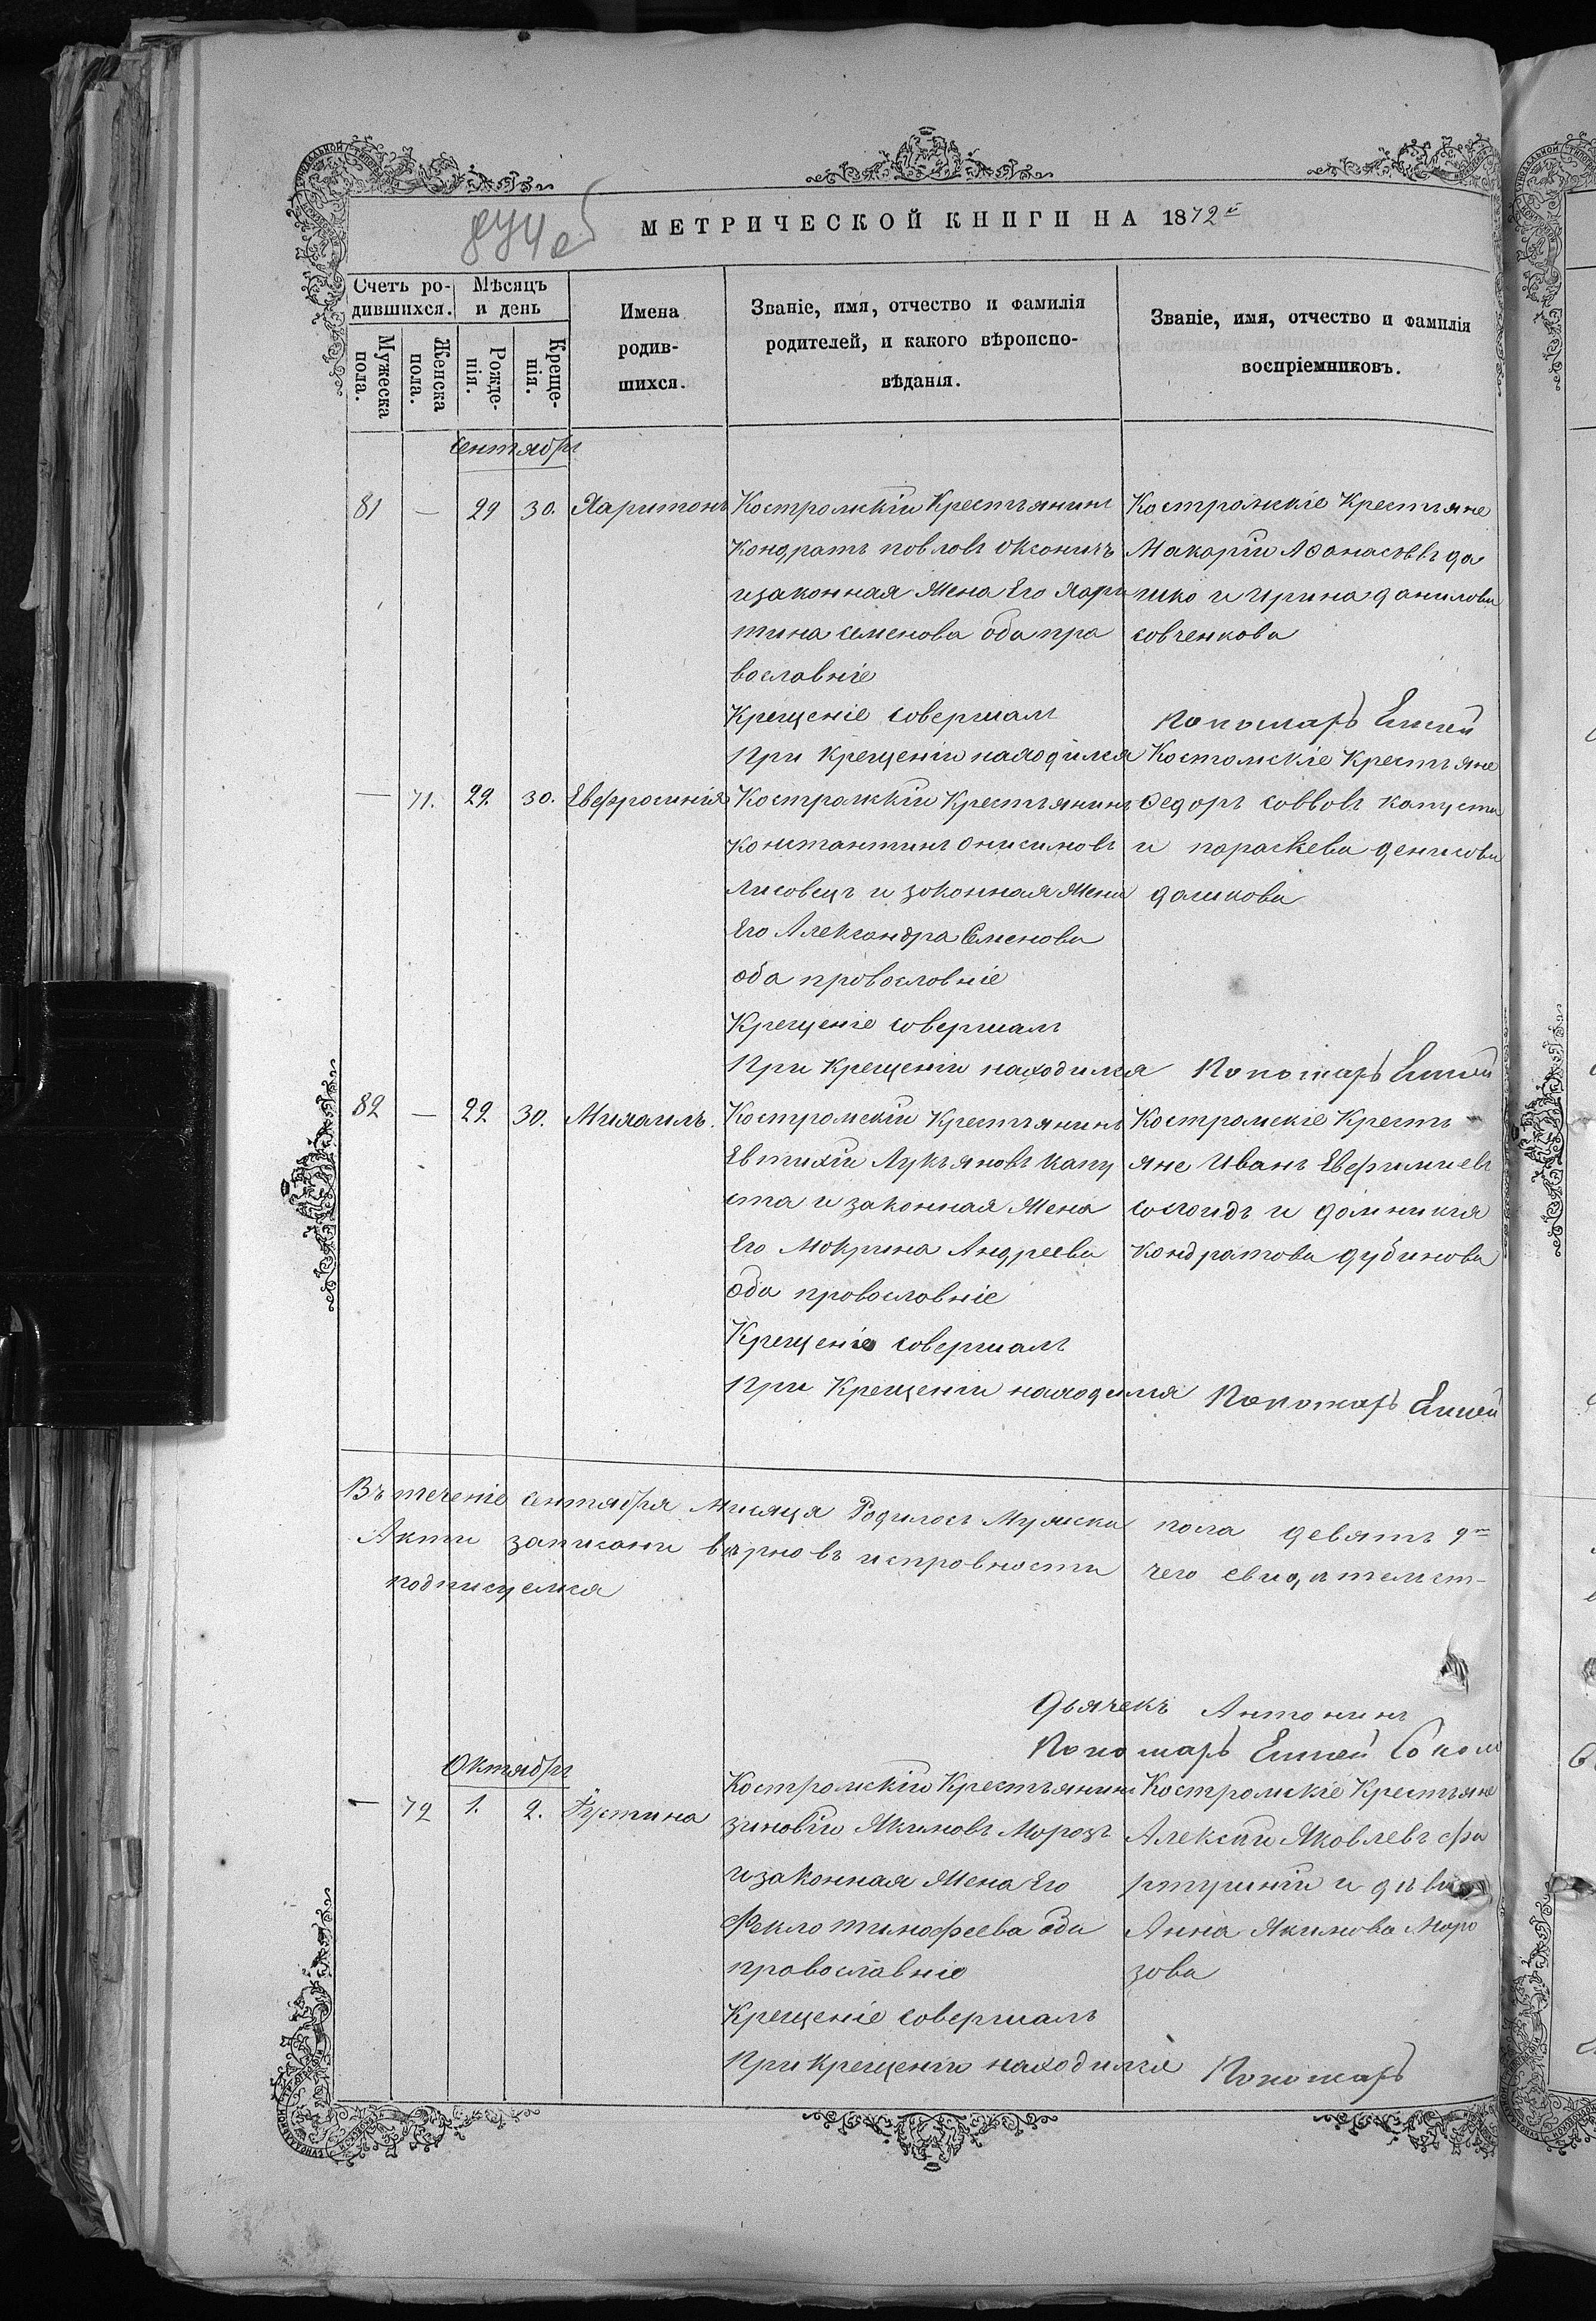 874 об
МЕТРИЧЕСКОЙ КНИГИ НА 1872й
Счетъ ро-
дившихся.
Мѣсяцъ
и день
Мужеска
пола.
Женска
пола.
Рожде-
нія.
Креще-
нія.
Имена
родив-
шихся.
Званіе, имя, отчество и фамилія
родителей, и какого вѣроиспо-
вѣданія.
Званіе, имя, отчество и фамилія
воспріемниковъ.
сентябрь
81 — 29 30. Харитонъ
Костромскіи Крестьянинъ
Кондратъ повловъ
изаконная Жена Его Хари
тина семенова оба пра
вославніе
Крещеніе совершалъ
При Крещеніи находился
Костромскіе Крестьяне
Макаріи Аѳанасьевъ да
шко и Ирина данилова
совченкова
Пономарь
— 71. 29 30. Евфросинія
Костромскіи Крестьянинъ
Константинъ онисимовъ
Лисовецъ и зоконная Жена
Его Александра Семенова
оба провословніе
Крещеніе совершалъ
При Крещеніи находился
Костомскіе Крестьяне
Ѳедоръ соввовъ капуста
и пораскева денисова
дошкова
Пономарь
82 — 22 30. Михаилъ.
Костромскіи Крестьянинъ
Евтихіи Лукьяновъ капу
ста и законная Жена
Его Мокрина Андреева
оба провословніе
Крещеніе совершалъ
При Крещеніи находился
Костромскіе Кресть
яне Иванъ Евфимиевъ
и домникія
Кондратова дубинова
Пономарь
Въ теченіе сентября Мисяця Родилось Мужска пола девять
Акти записани вѣрно въ исправности чего свидѣтелст-
подписуемся
Дьячекъ Антонинъ
Пономарь
Октябрь
— 72 1. 2. Іустина
Костромскіи Крестьянинъ
зиновіи Якимовъ Морозъ
изаконная Жена Его
Фекло тимофеева оба
провославніе
Крещеніе совершалъ
При крещеніи находился
Костромскіе Крестьяне
Алексѣи Яковлевъ фа
ртушніи и дѣвица
Анна Якимова Моро
зова
Пономарь